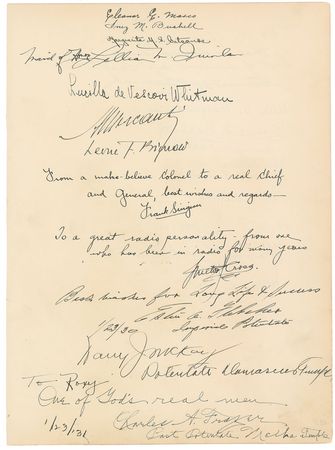 Eleanor G. Masco
Amy M. Bushell
Marguerite
Maid of Lillian M
Lucilla de Vescovi Whitman
Leone T.
From a make-believe Colonel to a real Chief
and General, best wishes and regards -
Frank
To a great radio personality - from one
who has been in radio for many years
Milton Cross.
Best wishes for Long Life & Success
1/23/30 Imperial Potentate
Harry
Potentate Damascus Temple
To Roxy
One of God's real men
1/23/31 Charles A. Frazer
Past Potentate Mecca Temple